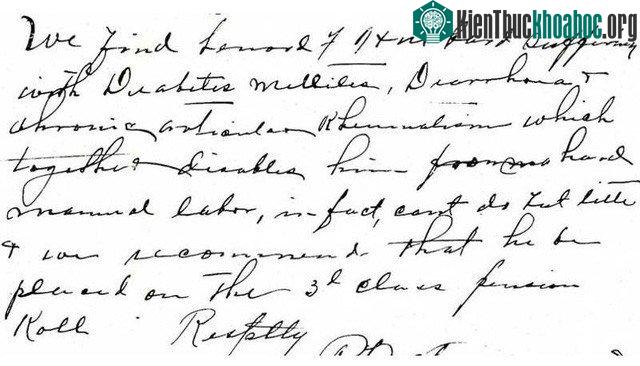 KienThucKhoahoc.org
We find Lenord F suffering
with Diabetes Mellites, Diarrhoea &
chronic articular Rheumatism which
together disables him from hard
manual labor, in fact, cant do but little
& we recommend that he be
placed on the 3d class pension
Roll Resptly